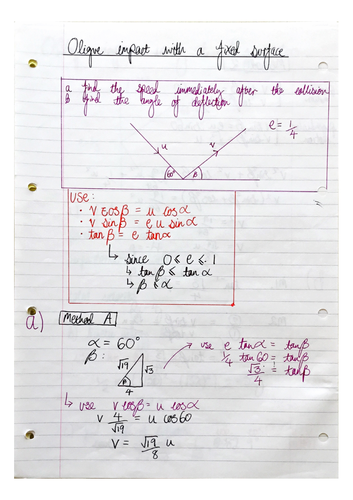 Oliqve impact with a fixed surface
a find the speed immediately after the collision
B find the angle of deflection
e = 1/4
u
v
60°
β
USE:
• v cosβ = u cosα
• v sinβ = e u sinα
• tanβ = e tanα
↳ since 0 ≤ e ≤ 1
↳ tanβ ≤ tanα
↳ β ≤ α
a)
Method A
α = 60°
β:
√19
√3
β
4
→ use e tanα = tanβ
1/4 tan60 = tanβ
√3/4 = tanβ
↳ use v cosβ = u cosα
v 4/√19 = u cos60
v = √19/8 u